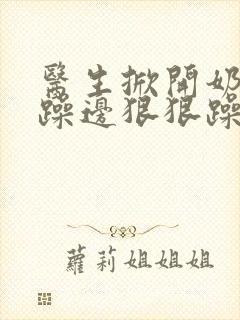 醫生掀開奶
躁邊狠狠躁
蘿莉姐姐姐